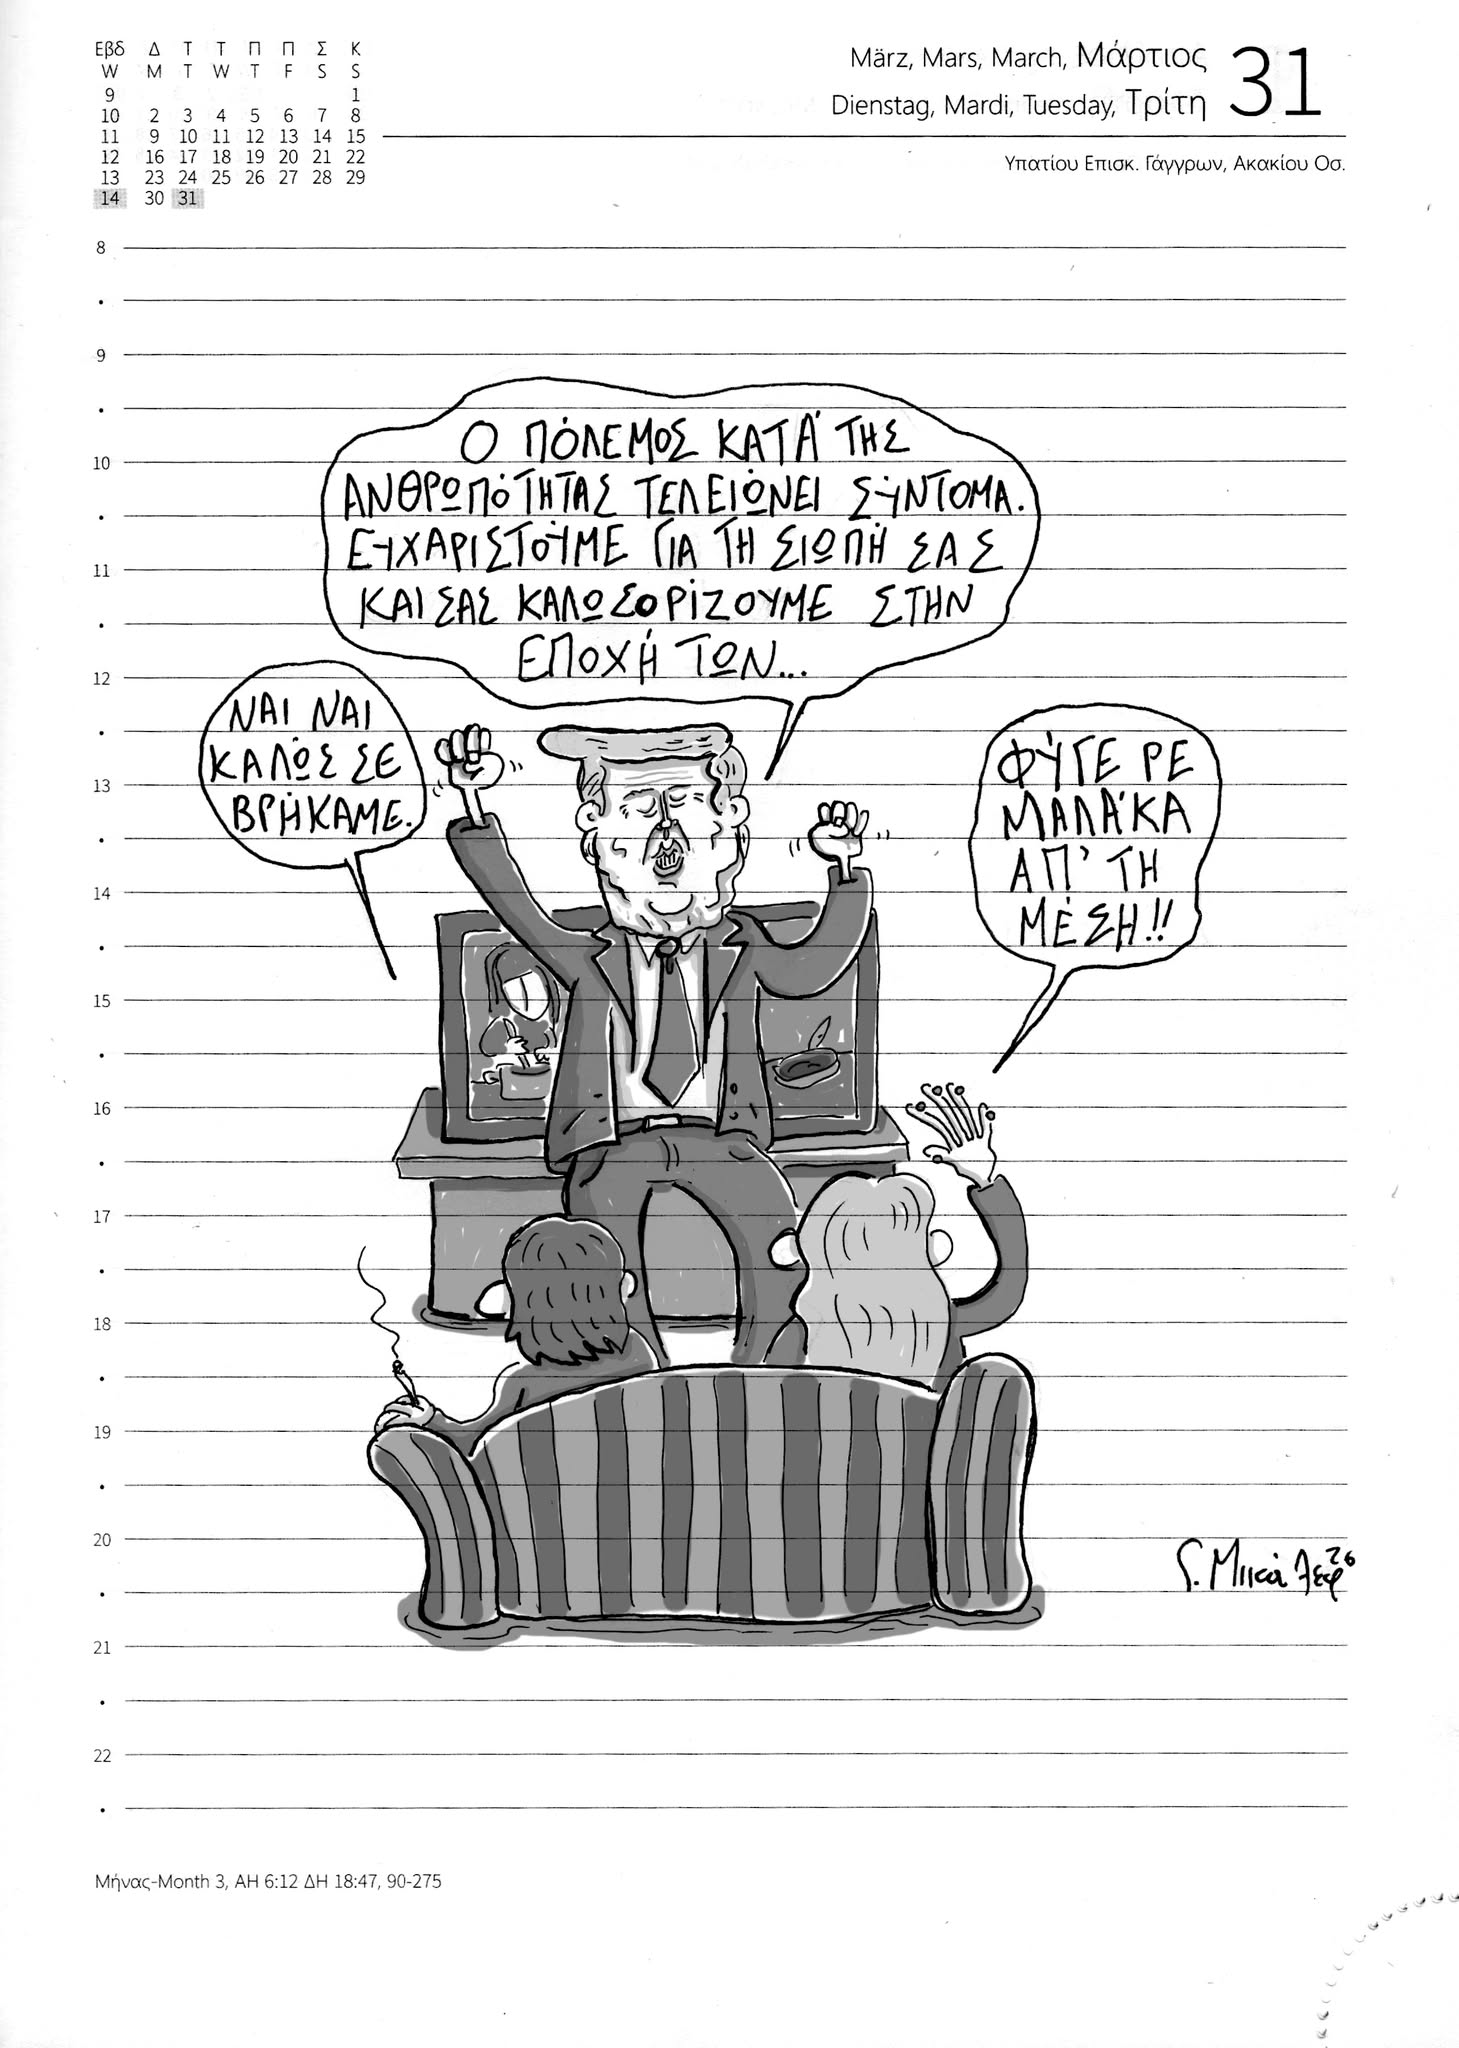 Εβδ Δ Τ Τ Π Π Σ Κ
W M T W T F S S
9 1
10 2 3 4 5 6 7 8
11 9 10 11 12 13 14 15
12 16 17 18 19 20 21 22
13 23 24 25 26 27 28 29
14 30 31
März, Mars, March, Μάρτιος 31
Dienstag, Mardi, Tuesday, Τρίτη
Υπατίου Επισκ. Γάγγρων, Ακακίου Οσ.
8
9
10
11
12
13
14
15
16
17
18
19
20
21
22
Ο ΠΌΛΕΜΟΣ ΚΑΤΆ ΤΗΣ
ΑΝΘΡΩΠΌΤΗΤΑΣ ΤΕΛΕΙΏΝΕΙ ΣΎΝΤΟΜΑ.
ΕΥΧΑΡΙΣΤΟΎΜΕ ΓΙΑ ΤΗ ΣΙΩΠΉ ΣΑΣ
ΚΑΙ ΣΑΣ ΚΑΛΩΣΟΡΊΖΟΥΜΕ ΣΤΗΝ
ΕΠΟΧΉ ΤΩΝ...
ΝΑΙ ΝΑΙ
ΚΑΛΏΣ ΣΕ
ΒΡΉΚΑΜΕ.
ΦΎΓΕ ΡΕ
ΜΑΛΆΚΑ
ΑΠ' ΤΗ
ΜΈΣΗ!!
Γ. Μικάλεφ 26
Μήνας-Month 3, ΑΗ 6:12 ΔΗ 18:47, 90-275